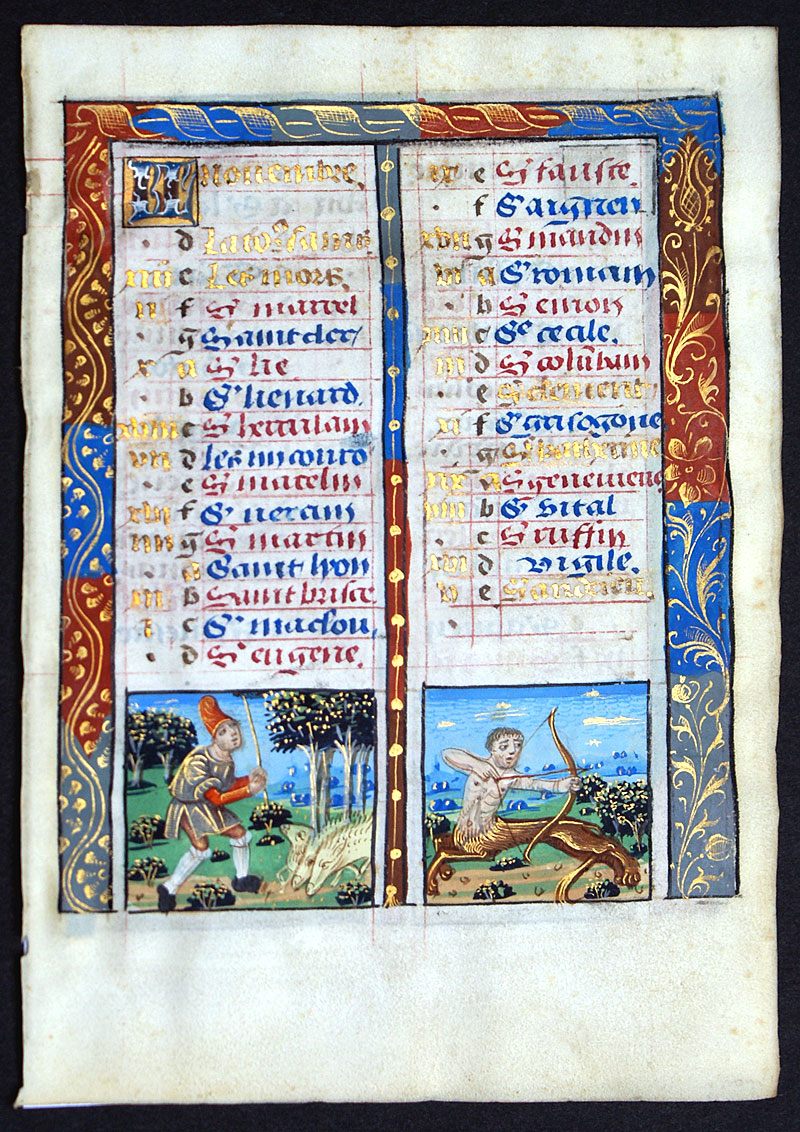 KL Nouembre.
. d La toꝰ sains
xiii e Les mors.
ii f S. marcel
. g Saint cler
x a S. lie
. b S. lienard.
xviii c S.
vii d les iiii couro
. e S. matelin
xv f S. veram
iiii g S. martin
. a Saint lyon
xii b Saint brisce
i c S. maclou.
. d S. eugene.
ix e S. fauste.
. f S. aignen
xvii g S. mandin
vi a S. romain
. b S. emon
xiiii c Se cecile.
iii d S. columbain
. e S. clement
xi f S. grisogone
. g S. katherine
xix a S. genevieve
viii b S. vital
. c S. ruffin
xvi d vigile.
v e S. andrieu.
.